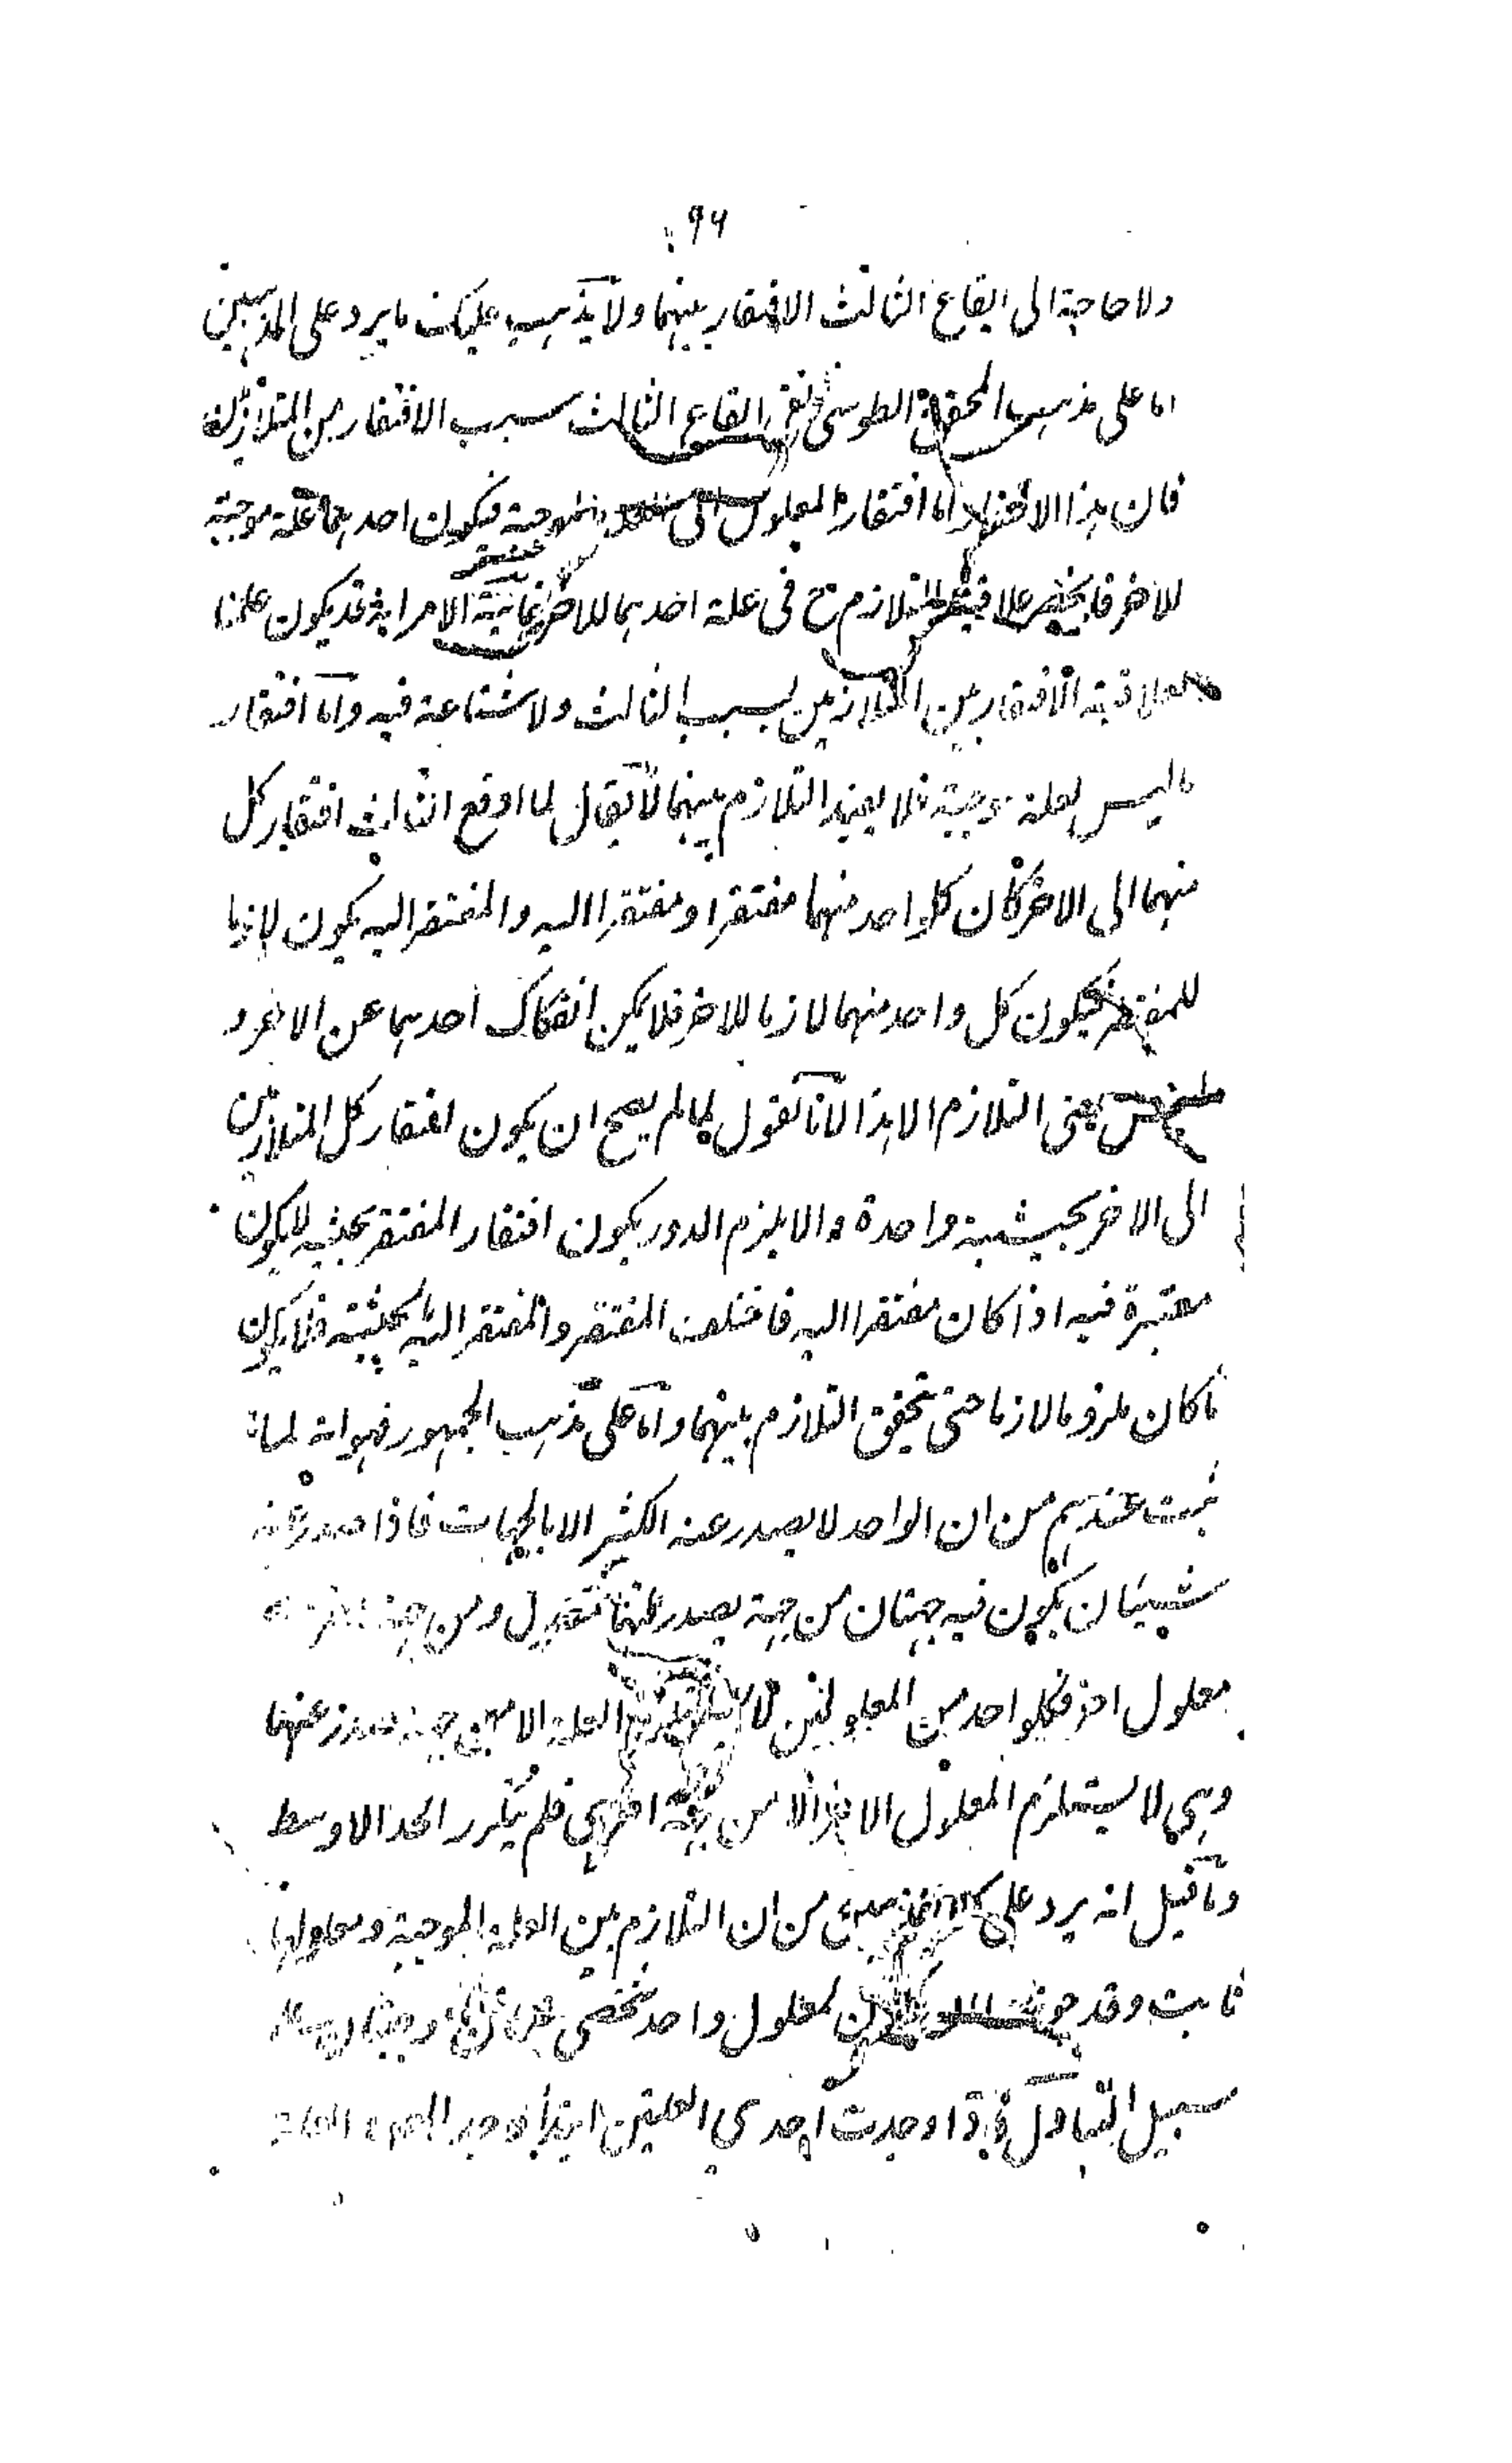 ٩٤
ولا حاجة الى ايقاع الثالث الافتقار بينهما ولا يذهب عليك ما يرد على المذهبين
اما على مذهب المحقق الطوسي ايقاع الثالث سبب الافتقار بين المتلازمين
فان هذا الافتقار اما افتقار المعلول الى الموجبة فيكون احدهما علة موجبة
للاخر فانحصر علاقة التلازم ح في علة احدهما للاخر غاية الامر انه قد يكون علتنا
لعلاقة الافتقار بين المتلازمين بسبب الثالث ولا شناعة فيه واما افتقار
ما ليس لعلة موجبة فلا يفيد التلازم بينهما لا يقال لما اوقع الثالث افتقار كل
منهما الى الاخر فكان كل واحد منهما مفتقرا ومفتقرا اليه والمفتقر اليه يكون لازما
للمفتقر فيكون كل واحد منهما لازما للاخر فلا يمكن انفكاك احدهما عن الاخر و
معنى التلازم الا هذا لانا نقول لما لم يصح ان يكون افتقار كل المتلازمين
الى الاخر بحيثية واحدة والا يلزم الدور يكون افتقار المفتقر بحيثية لا يكون
معتبرة فيه اذا كان مفتقرا اليه فاختلف المفتقر والمفتقر اليه بالحيثية فلا يكون
ما كان ملزوما لازما حتى تحقق التلازم بينهما واما على مذهب الجمهور فهو انه لما
ثبت عندهم من ان الواحد لا يصدر عنه الكثير الا بالجهات فاذا صدر عنه
شيئان يكون فيه جهتان من جهة يصدر عنهما معلول ومن جهة
معلول اخر فكل واحد من المعلولين لا يستلزم العلة الا من جهة صدر عنها
وهي لا يستلزم المعلول الاخر الا من جهة اخرى فلم يتكرر الحد الاوسط
وما قيل انه يرد على من ان التلازم بين العلة الموجبة ومعلولها
ثابت وقد جوز ان يكون لمعلول واحد شخصي
سبيل التبادل فاذا وجدت احدى العلتين ابتداء وجد